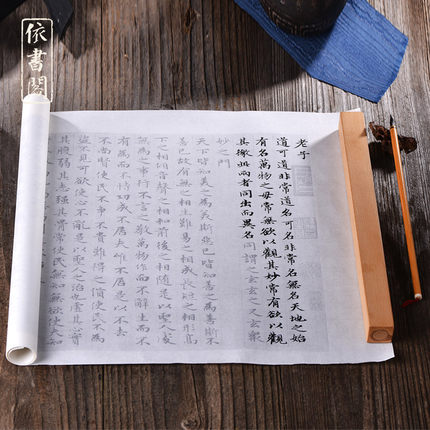 依書閣
老子
道可道非常道名可名非常名無名天地之始
有名萬物之母常無欲以觀其妙常有欲以觀
其徼此兩者同出而異名同謂之玄玄之又玄眾
妙之門
天下皆知美之為美斯惡已皆知善之為善斯不
善已故有無之相生難易之相成長短之相形高
下之相傾音聲之相和前後之相隨是以聖人處
無為之事行不言之教萬物作而不辭生而不
有為而不恃功成不居夫唯不居是以不去
不尚賢使民不爭不貴難得之貨使民不為
盜不見可欲使心不亂是以聖人之治也虛其心實
其腹弱其志強其骨常使民無知無欲使夫知